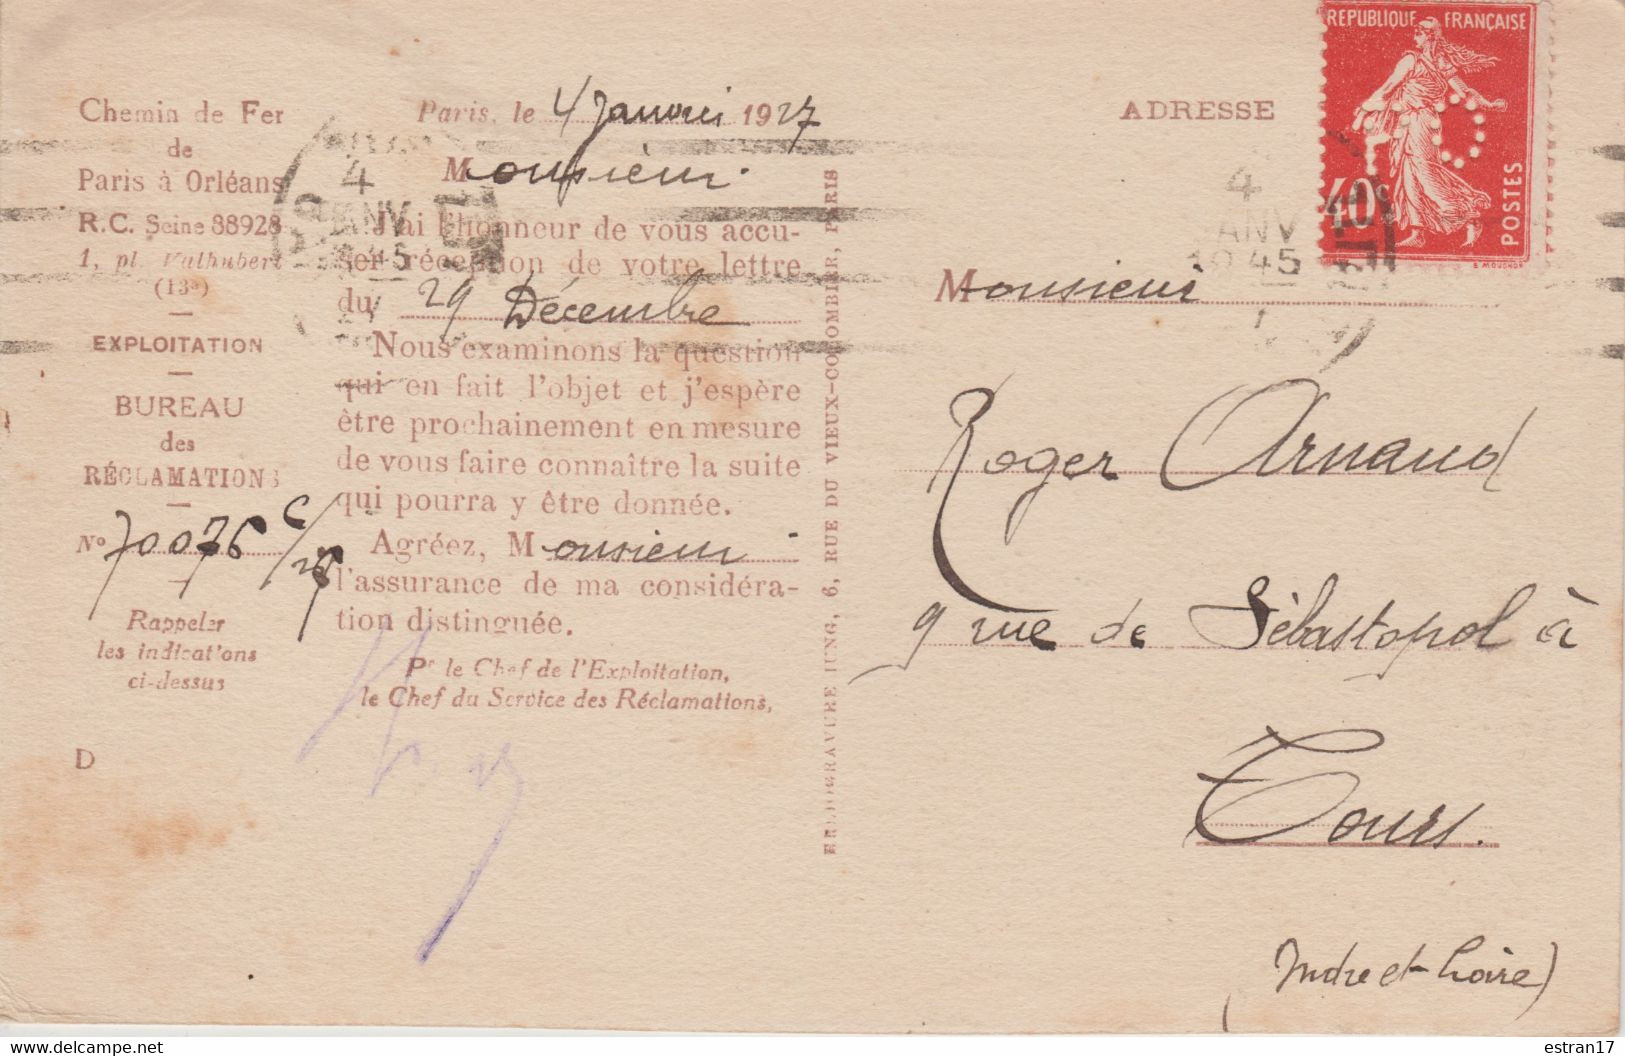 Chemin de Fer
de
Paris à Orléans
R.C. Seine 88928
1, pl. Valhubert
(13e)
EXPLOITATION
BUREAU
des
RÉCLAMATIONS
No 70076 C/
Rappeler
les indications
ci-dessus
D
Paris, le 4 Janvier 1927
Monsieur
J'ai l'honneur de vous accu-
ser réception de votre lettre
du 29 Décembre
Nous examinons la question
qui en fait l'objet et j'espère
être prochainement en mesure
de vous faire connaître la suite
qui pourra y être donnée.
Agréez, Monsieur
l'assurance de ma considéra-
tion distinguée.
Pr le Chef de l'Exploitation,
le Chef du Service des Réclamations,
RUE DU VIEUX-COLOMBIER, PARIS
JUNG, 6,
ADRESSE
REPUBLIQUE FRANÇAISE
40c
POSTES
E. MOUCHON
PO
4
JANV
45
4
ANV
1945
Monsieur
Roger Arnaud
9 rue de Sébastopol à
Tours.
(Indre et Loire)
delcampe.net
estran17